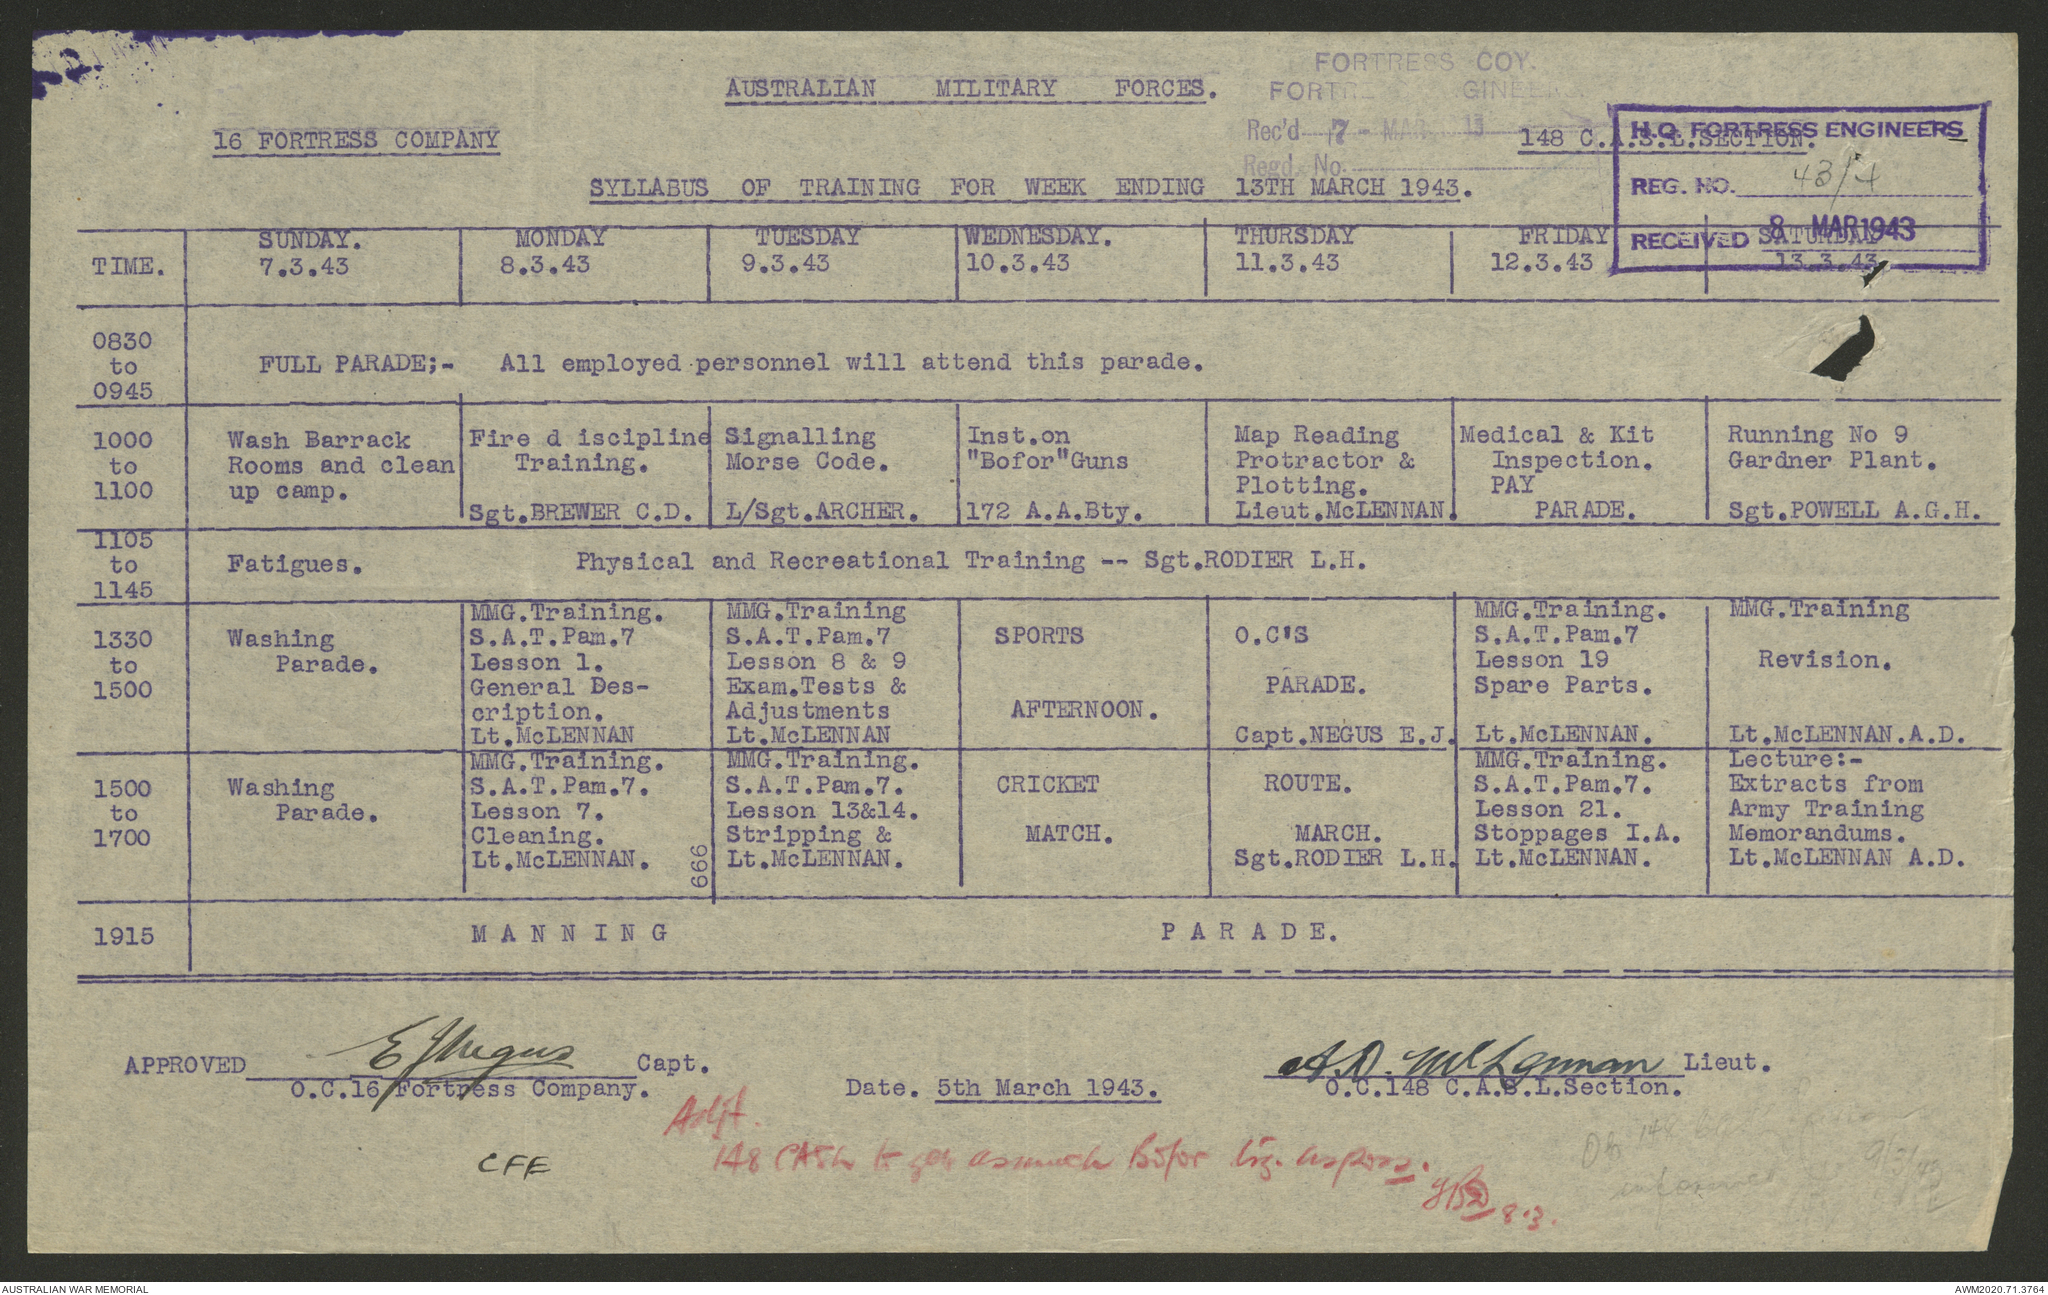 FORTRESS COY.
AUSTRALIAN MILITARY FORCES.
FORTRE GINEERS
Rec'd 7 - MAR 43
Regd. No.
16 FORTRESS COMPANY
148 C.A.S.L.SECTION.
H.Q. FORTRESS ENGINEERS
REG. NO. 43/4
RECEIVED 8 MAR 1943
SYLLABUS OF TRAINING FOR WEEK ENDING 13TH MARCH 1943.
TIME.
SUNDAY.
7.3.43
MONDAY
8.3.43
TUESDAY
9.3.43
WEDNESDAY.
10.3.43
THURSDAY
11.3.43
FRIDAY
12.3.43
SATURDAY
13.3.43
0830
to
0945
FULL PARADE;- All employed personnel will attend this parade.
1000
to
1100
Wash Barrack
Rooms and clean
up camp.
Fire d iscipline
Training.
Sgt.BREWER C.D.
Signalling
Morse Code.
L/Sgt.ARCHER.
Inst.on
"Bofor"Guns
172 A.A.Bty.
Map Reading
Protractor &
Plotting.
Lieut.McLENNAN.
Medical & Kit
Inspection.
PAY
PARADE.
Running No 9
Gardner Plant.
Sgt.POWELL A.G.H.
1105
to
1145
Fatigues.
Physical and Recreational Training -- Sgt.RODIER L.H.
1330
to
1500
Washing
Parade.
MMG.Training.
S.A.T.Pam.7
Lesson 1.
General Des-
cription.
Lt.McLENNAN
MMG.Training
S.A.T.Pam.7
Lesson 8 & 9
Exam.Tests &
Adjustments
Lt.McLENNAN
SPORTS
AFTERNOON.
O.C'S
PARADE.
Capt.NEGUS E.J.
MMG.Training.
S.A.T.Pam.7
Lesson 19
Spare Parts.
Lt.McLENNAN.
MMG.Training
Revision.
Lt.McLENNAN.A.D.
1500
to
1700
Washing
Parade.
MMG.Training.
S.A.T.Pam.7.
Lesson 7.
Cleaning.
Lt.McLENNAN.
666
MMG.Training.
S.A.T.Pam.7.
Lesson 13&14.
Stripping &
Lt.McLENNAN.
CRICKET
MATCH.
ROUTE.
MARCH.
Sgt.RODIER L.H.
MMG.Training.
S.A.T.Pam.7.
Lesson 21.
Stoppages I.A.
Lt.McLENNAN.
Lecture:-
Extracts from
Army Training
Memorandums.
Lt.McLENNAN A.D.
1915
MANNING PARADE.
APPROVED E J Negus Capt.
O.C.16 Fortress Company.
Date. 5th March 1943.
A.D. McLennan Lieut.
O.C.148 C.A.S.L.Section.
Adjt.
148 CASL to get as much Bofor trg. as poss.
8.3.
CFE
148
informed
9/3/43
AUSTRALIAN WAR MEMORIAL
AWM2020.71.3764